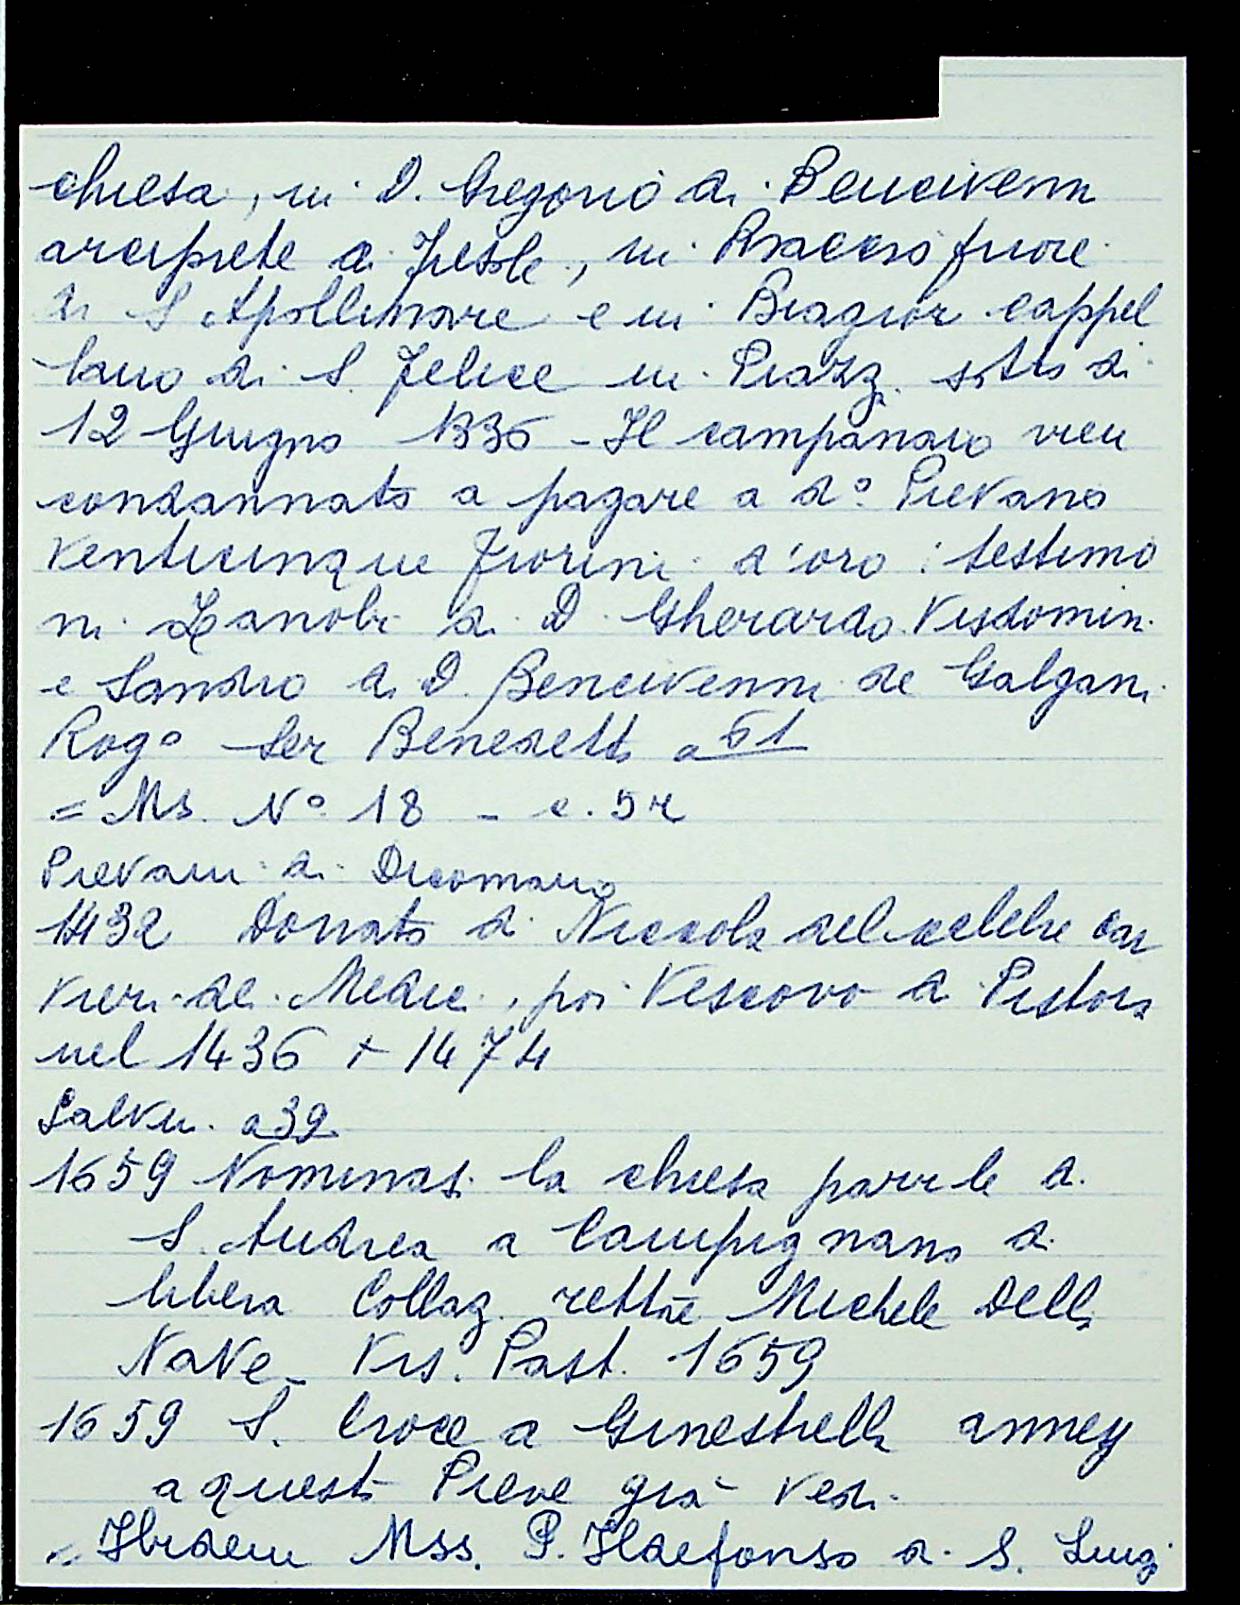 chiesa, in D. Gregorio di Bencivenn
arciprete di Fiesole, in Bracco fuore
di S Apollinare e in Biagior cappel
lano di S. Felice in Piazz. sotto di
12 Giugno 1336 - Il campanaio vien
condannato a pagare a d.º Pievano
venticinque fiorini d'oro: testimo
ni Zanobi di D. Gherardo Visdomin.
e Sandro di D. Bencivenni de Galgani
Rogº Ser Benedetto a 61
= Ms. Nº 18 - c. 5r
Pievani di Dicomano
1432 Donato di Niccola del celebre
Vieri de Medici, poi Vescovo di Pistoia
nel 1436 + 1474
Salvin. a 39
1659 Nominas. la chiesa parrle di
S. Andrea a Campignano di
libera Collaz. rettōe Michele Della
Nave - Vis. Past. 1659
1659 S. Croce a Ginestrella
a questa Pieve già vedi
= Ibidem Mss. P. Ildefonso di S. Luigi